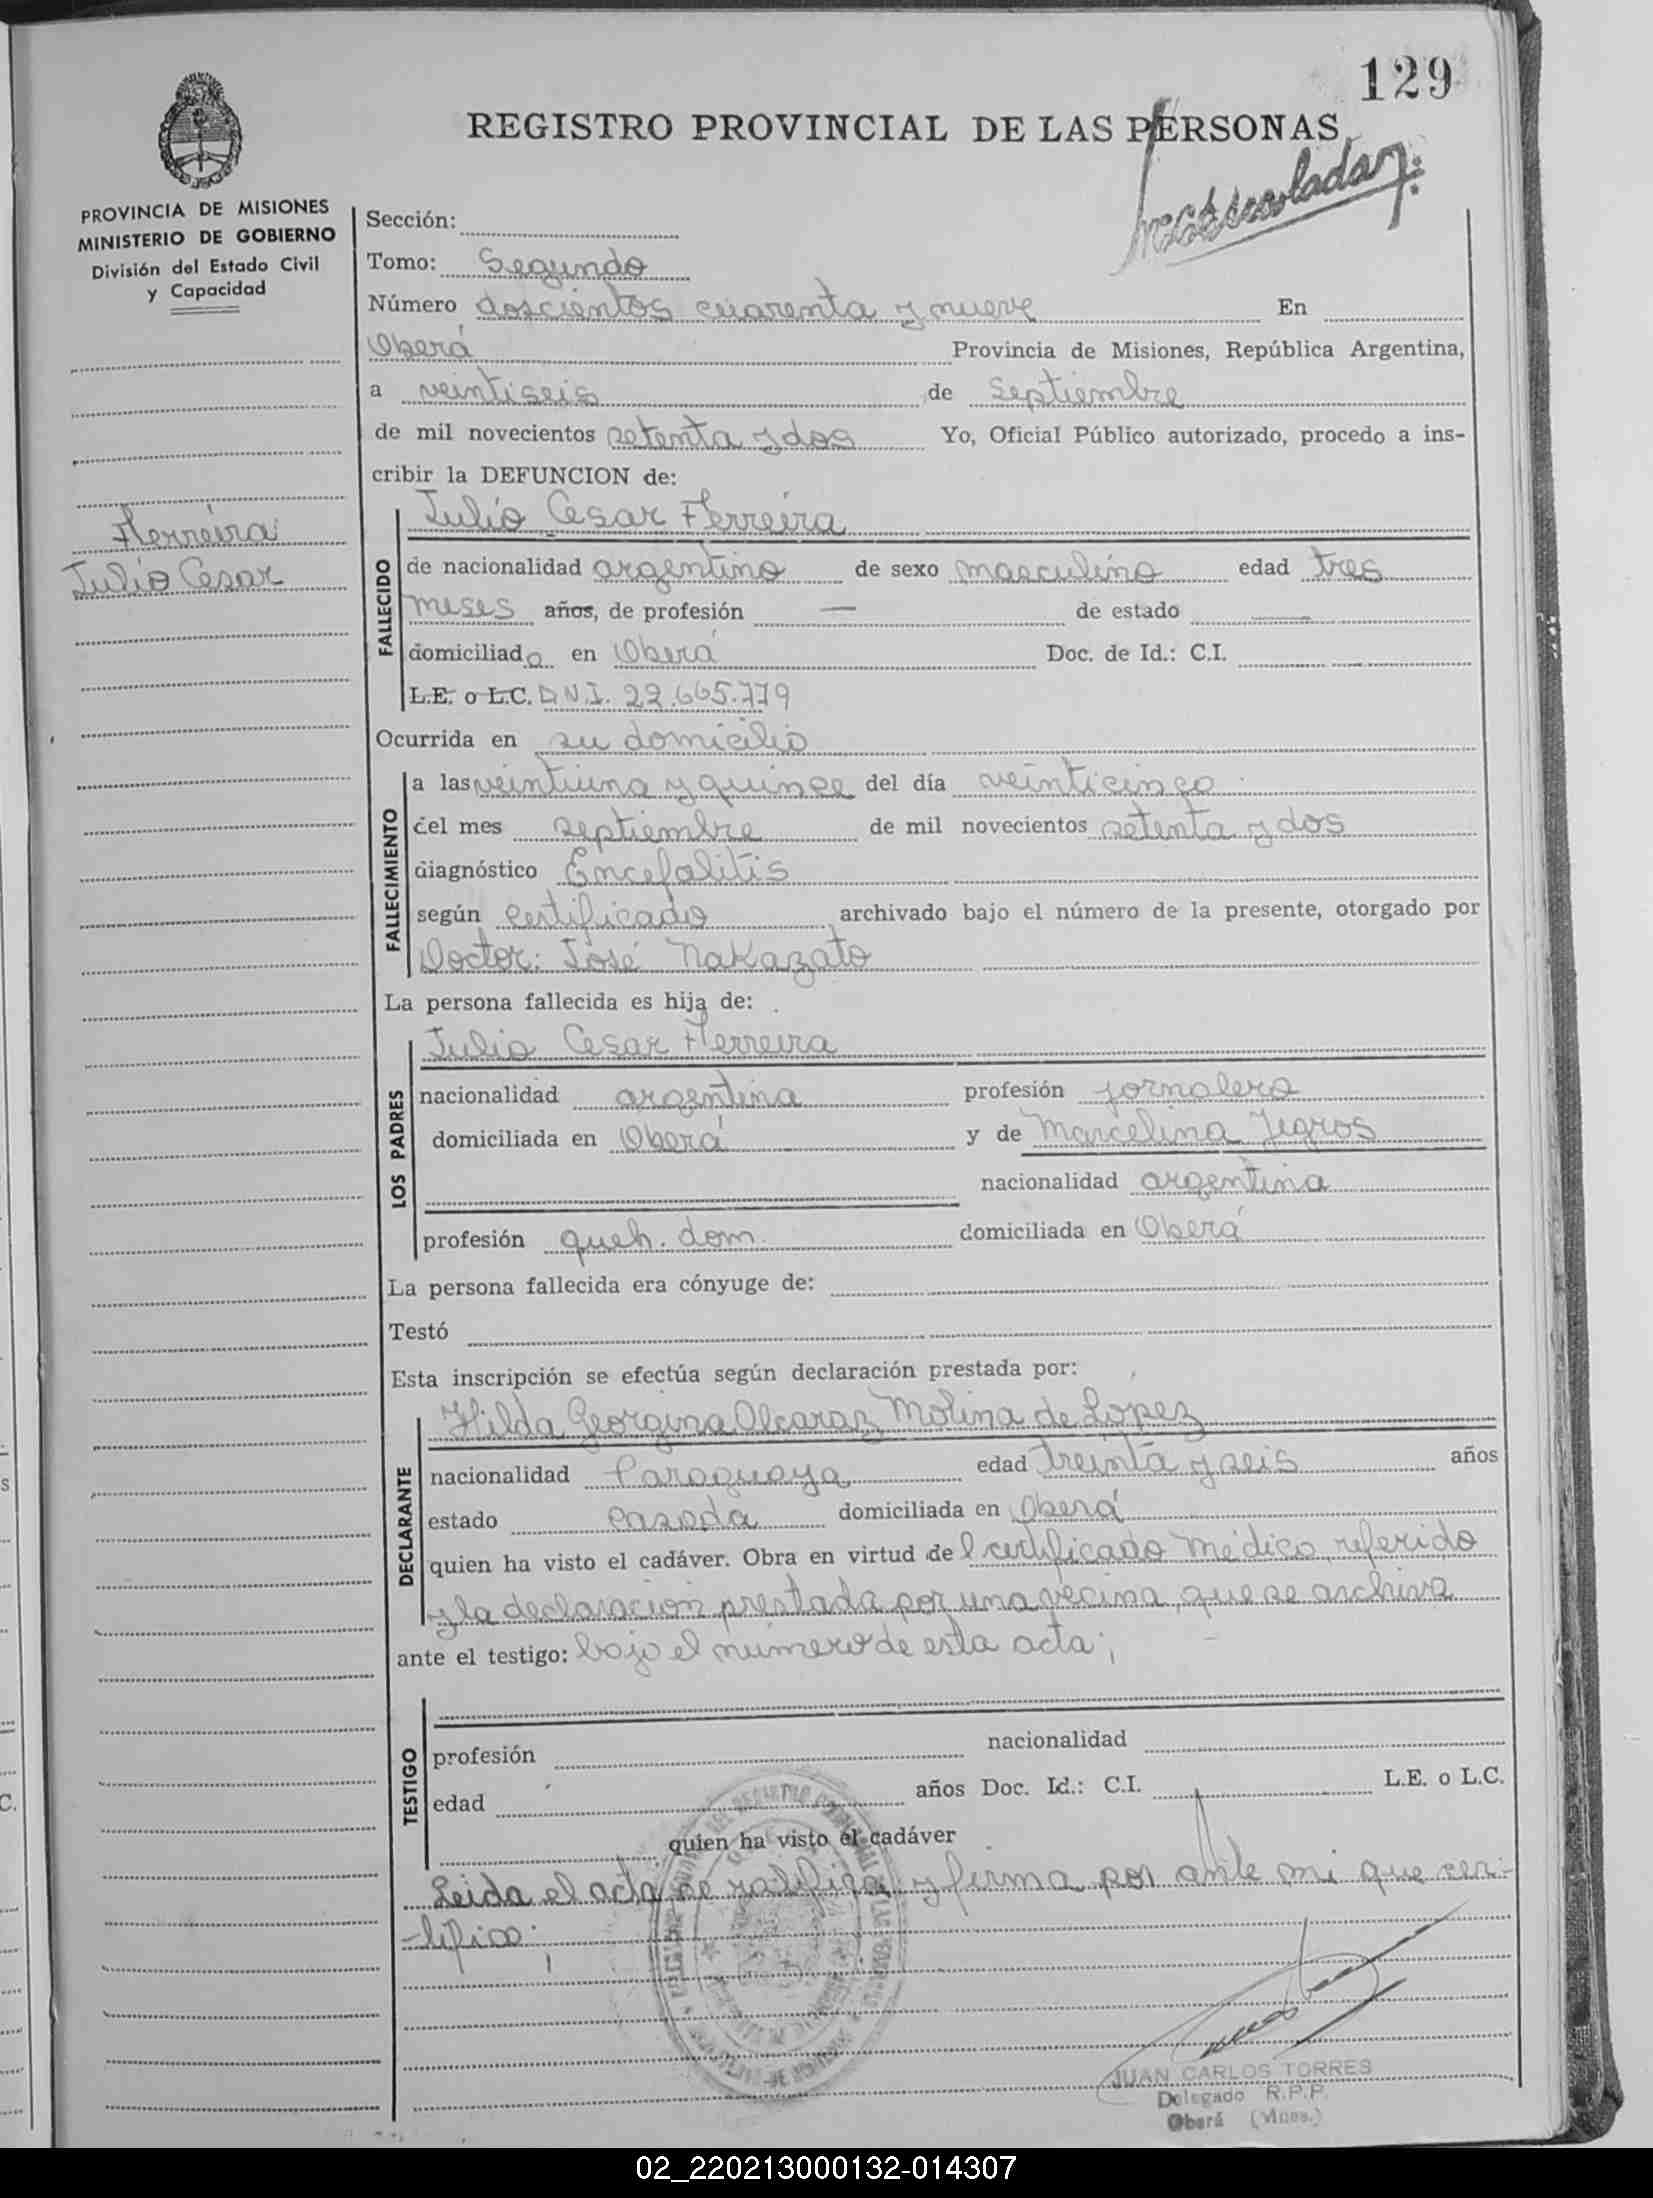 129
REGISTRO PROVINCIAL DE LAS PERSONAS
PROVINCIA DE MISIONES
MINISTERIO DE GOBIERNO
División del Estado Civil
y Capacidad
Sección:
Tomo: Segundo
Número doscientos cuarenta y nueve En
Oberá Provincia de Misiones, República Argentina,
a veintiseis de septiembre
de mil novecientos setenta y dos Yo, Oficial Público autorizado, procedo a ins-
cribir la DEFUNCION de:
Ferreira
Julio Cesar
FALLECIDO
Julio Cesar Ferreira
de nacionalidad argentino de sexo masculino edad tres
meses años, de profesión — de estado —
domiciliado en Oberá Doc. de Id.: C.I.
L.E. o L.C. D.N.I. 22.665.779
Ocurrida en su domicilio
FALLECIMIENTO
a las veintiuna y quince del día veinticinco
del mes septiembre de mil novecientos setenta y dos
diagnóstico Encefalitis
según certificado archivado bajo el número de la presente, otorgado por
Doctor: José Nakazato
La persona fallecida es hija de:
LOS PADRES
Julio Cesar Ferreira
nacionalidad argentina profesión jornalero
domiciliada en Oberá y de Marcelina Yegros
nacionalidad argentina
profesión queh. dom. domiciliada en Oberá
La persona fallecida era cónyuge de:
Testó
Esta inscripción se efectúa según declaración prestada por:
DECLARANTE
Hilda Georgina Alcaraz Molina de Lopez
nacionalidad Paraguaya edad treinta y seis años
estado casada domiciliada en Oberá
quien ha visto el cadáver. Obra en virtud de l certificado médico referido
y la declaración prestada por una vecina, que se archiva
ante el testigo: bajo el número de esta acta;
TESTIGO
profesión nacionalidad
edad años Doc. Id.: C.I. L.E. o L.C.
quien ha visto el cadáver
Leida el acta se ratifica y firma por ante mi que cer-
tifico;
JUAN CARLOS TORRES
Delegado R.P.P.
Oberá (Mnes.)
02_220213000132-014307